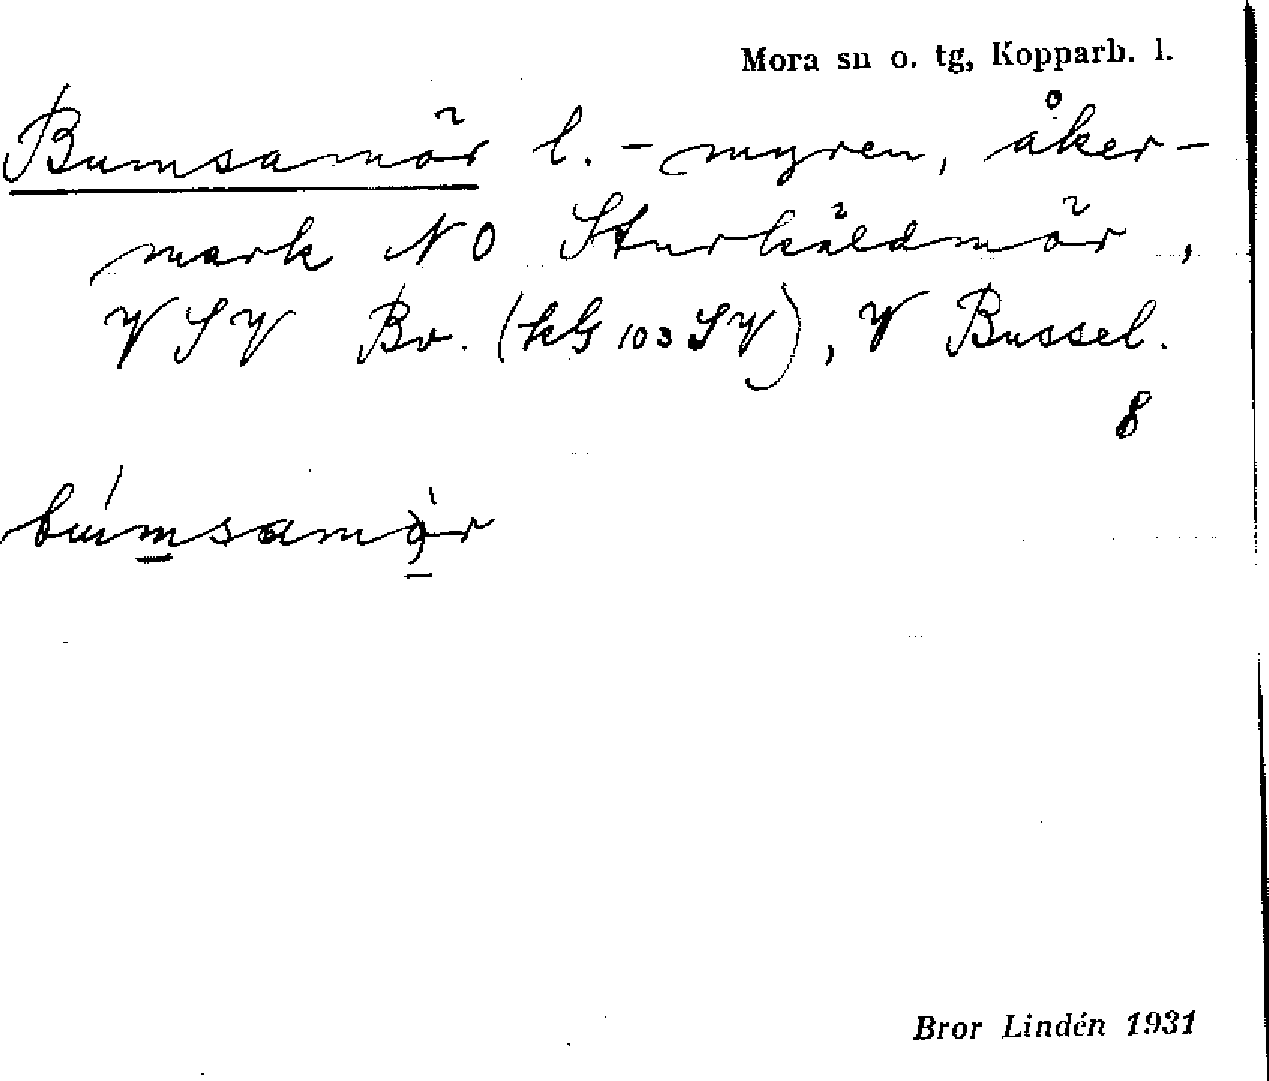 Mora sn o. tg, Kopparb. l.
Bumsamör l. -myren, åker-
mark NO Sturkäldmör,
VSV Bv. (kG 103 SV), V Bussel.
8
bumsamör
Bror Lindén 1931